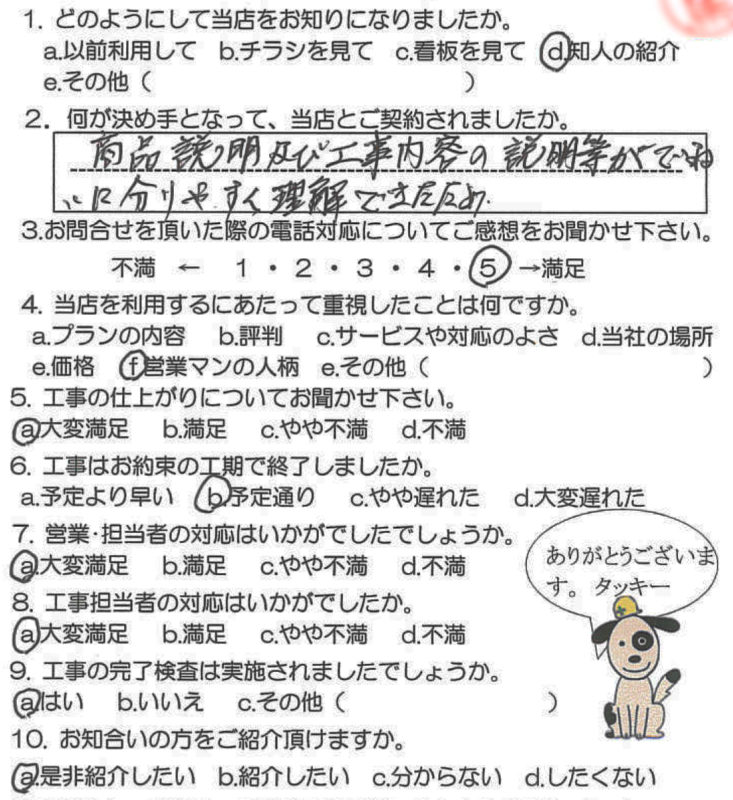 1. どのようにして当店をお知りになりましたか。
a.以前利用して b.チラシを見て c.看板を見て d.知人の紹介
e.その他（ ）
2. 何が決め手となって、当店とご契約されましたか。
商品説明及び工事内容の説明等がていね
いに分りやすく理解できたため.
3.お問合せを頂いた際の電話対応についてご感想をお聞かせ下さい。
不満 ← 1・2・3・4・5 →満足
4. 当店を利用するにあたって重視したことは何ですか。
a.プランの内容 b.評判 c.サービスや対応のよさ d.当社の場所
e.価格 f営業マンの人柄 e.その他（ ）
5. 工事の仕上がりについてお聞かせ下さい。
a.大変満足 b.満足 c.やや不満 d.不満
6. 工事はお約束の工期で終了しましたか。
a.予定より早い b.予定通り c.やや遅れた d.大変遅れた
7. 営業・担当者の対応はいかがでしたでしょうか。
a.大変満足 b.満足 c.やや不満 d.不満
ありがとうございま
す。 タッキー
8. 工事担当者の対応はいかがでしたか。
a大変満足 b.満足 c.やや不満 d.不満
9. 工事の完了検査は実施されましたでしょうか。
a.はい b.いいえ c.その他（ ）
10. お知合いの方をご紹介頂けますか。
a.是非紹介したい b.紹介したい c.分からない d.したくない